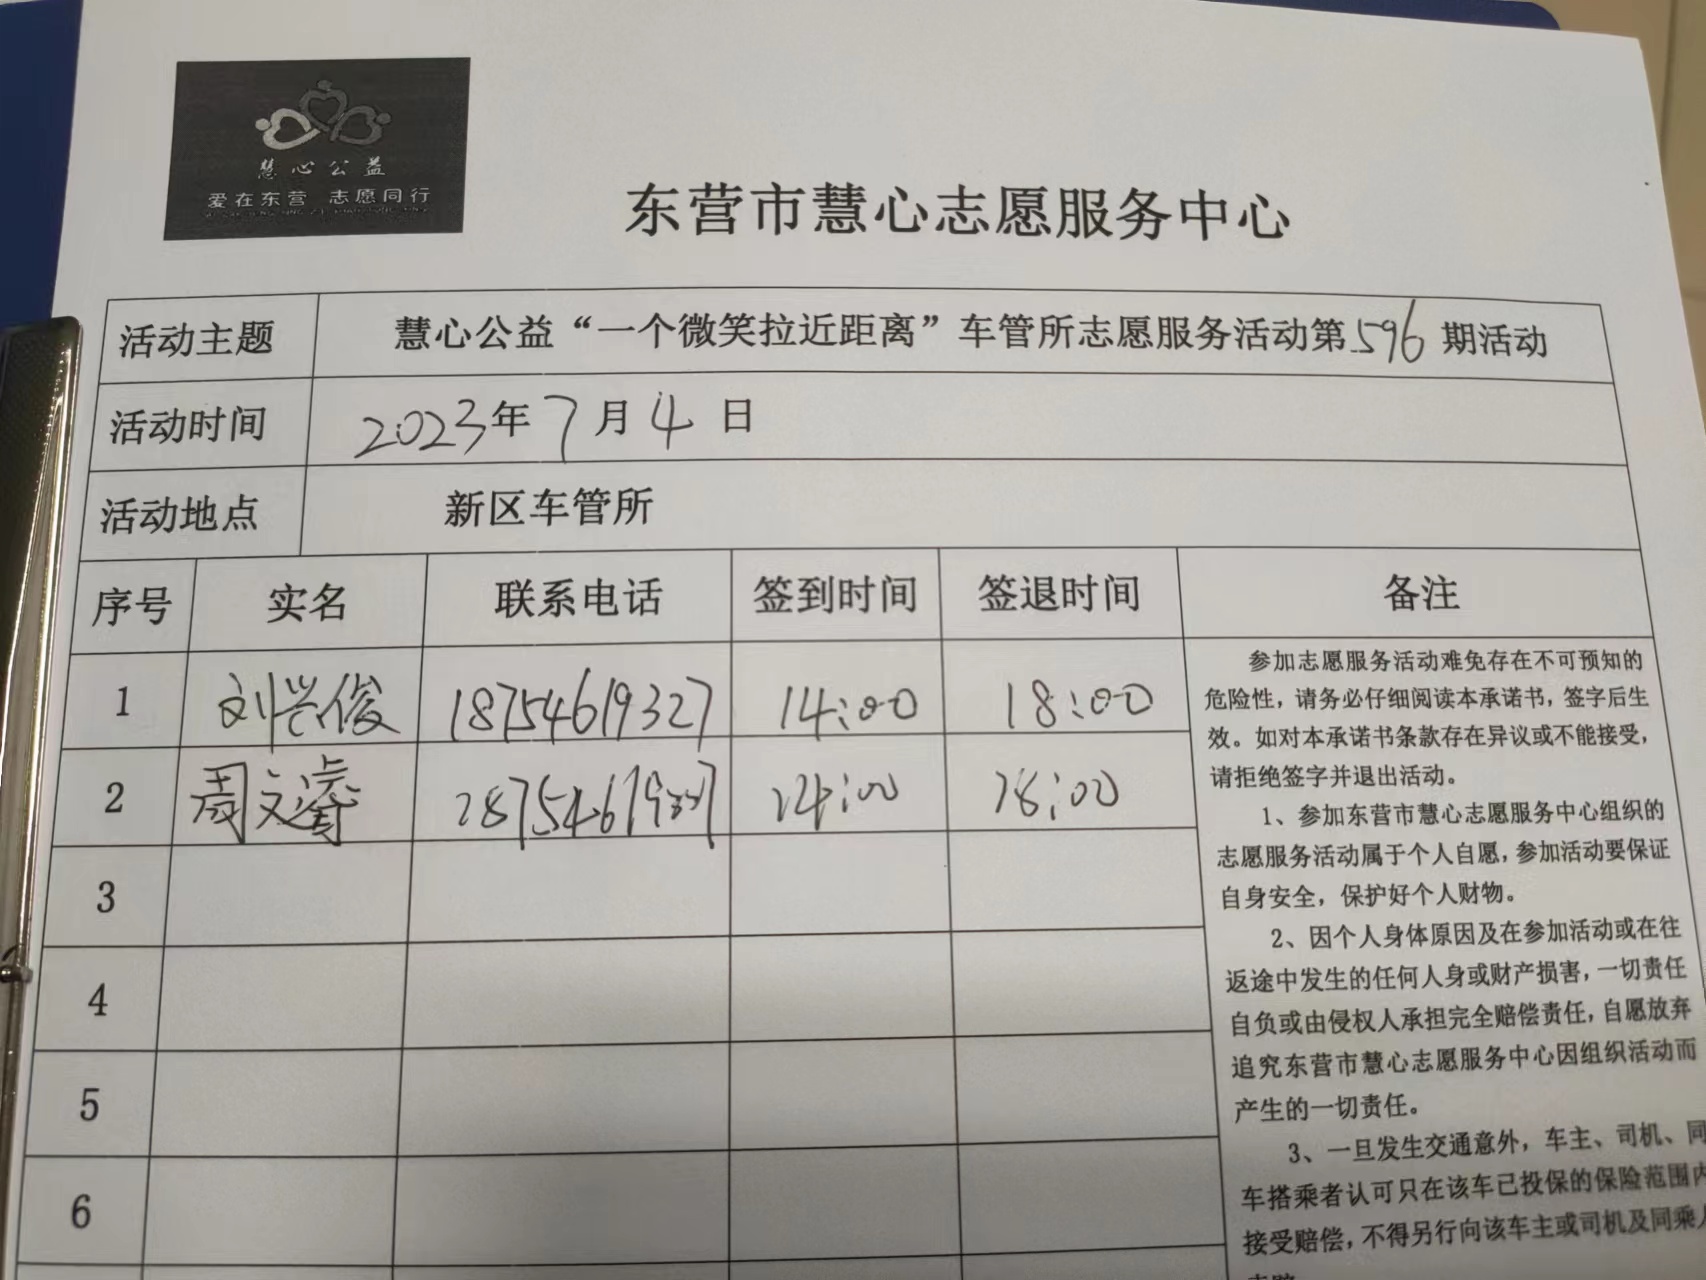 慧心公益
爱在东营 志愿同行
东营市慧心志愿服务中心
活动主题 慧心公益“一个微笑拉近距离”车管所志愿服务活动第596期活动
活动时间 2023年7月4日
活动地点 新区车管所
序号 实名 联系电话 签到时间 签退时间 备注
1 刘兴俊 18754619327 14:00 18:00
2 周文睿 14:00 18:00
3
4
5
6
参加志愿服务活动难免存在不可预知的
危险性，请务必仔细阅读本承诺书，签字后生
效。如对本承诺书条款存在异议或不能接受，
请拒绝签字并退出活动。
1、参加东营市慧心志愿服务中心组织的
志愿服务活动属于个人自愿，参加活动要保证
自身安全，保护好个人财物。
2、因个人身体原因及在参加活动或在往
返途中发生的任何人身或财产损害，一切责任
自负或由侵权人承担完全赔偿责任，自愿放弃
追究东营市慧心志愿服务中心因组织活动而
产生的一切责任。
3、一旦发生交通意外，车主、司机、同
车搭乘者认可只在该车已投保的保险范围内
接受赔偿，不得另行向该车主或司机及同乘人